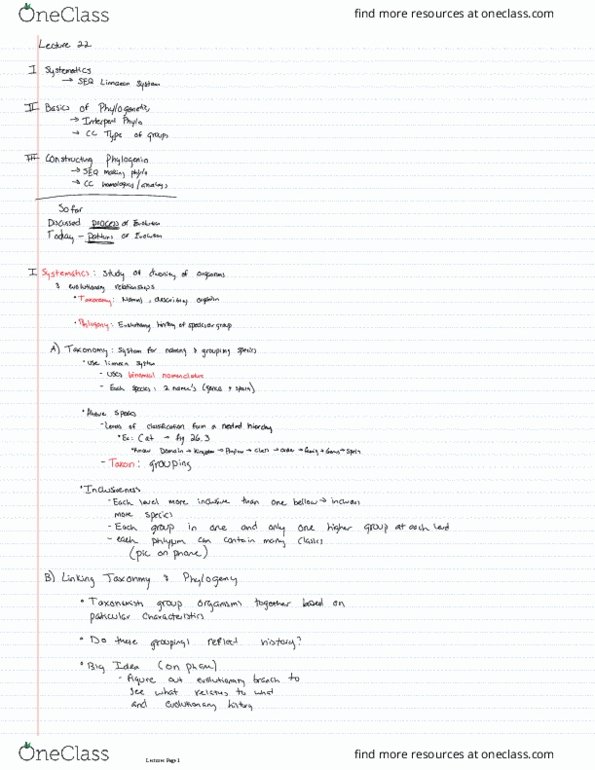 OneClass
find more resources at oneclass.com
Lecture 22
I Systematics
→ SEQ Linnaean System
II Basics of Phylogenetic
→ Interpret Phylo
→ CC Type of groups
III Constructing Phylogenia
→ SEQ making phylo
→ CC homologies/analogs
So far
Discussed process of Evolution
Today - pattern of Evolution
I. Systematics: Study of diversity of organisms
& evolutionary relationships
• Taxonomy: Naming, describing
• Phylogeny: Evolutionary history of species or group
A) Taxonomy: System for naming & grouping species
• Use linnean system
- Uses binomial nomenclature
- Each species: 2 name's (genus + species)
• Above species
- Levels of classification form a nested hierarchy
• Ex: Cat → fig 26.3
• Know Domain → Kingdom → Phylum → class → order → family → Genus → Species
- Taxon: grouping
• Inclusiveness
- Each level more inclusive than one bellow → includes
more species
- Each group in one and only one higher group at each level
- each phylum can contain many classes
(pic on phone)
B) Linking Taxonmy & Phylogeny
• Taxonomists group organisms together based on
paticular characteristics
• Do these groupings reflect history?
• Big Idea (on phone)
- figure out evolutionary branch to
see what relates to what
and evolutionary history
OneClass
Lectures Page 1
find more resources at oneclass.com